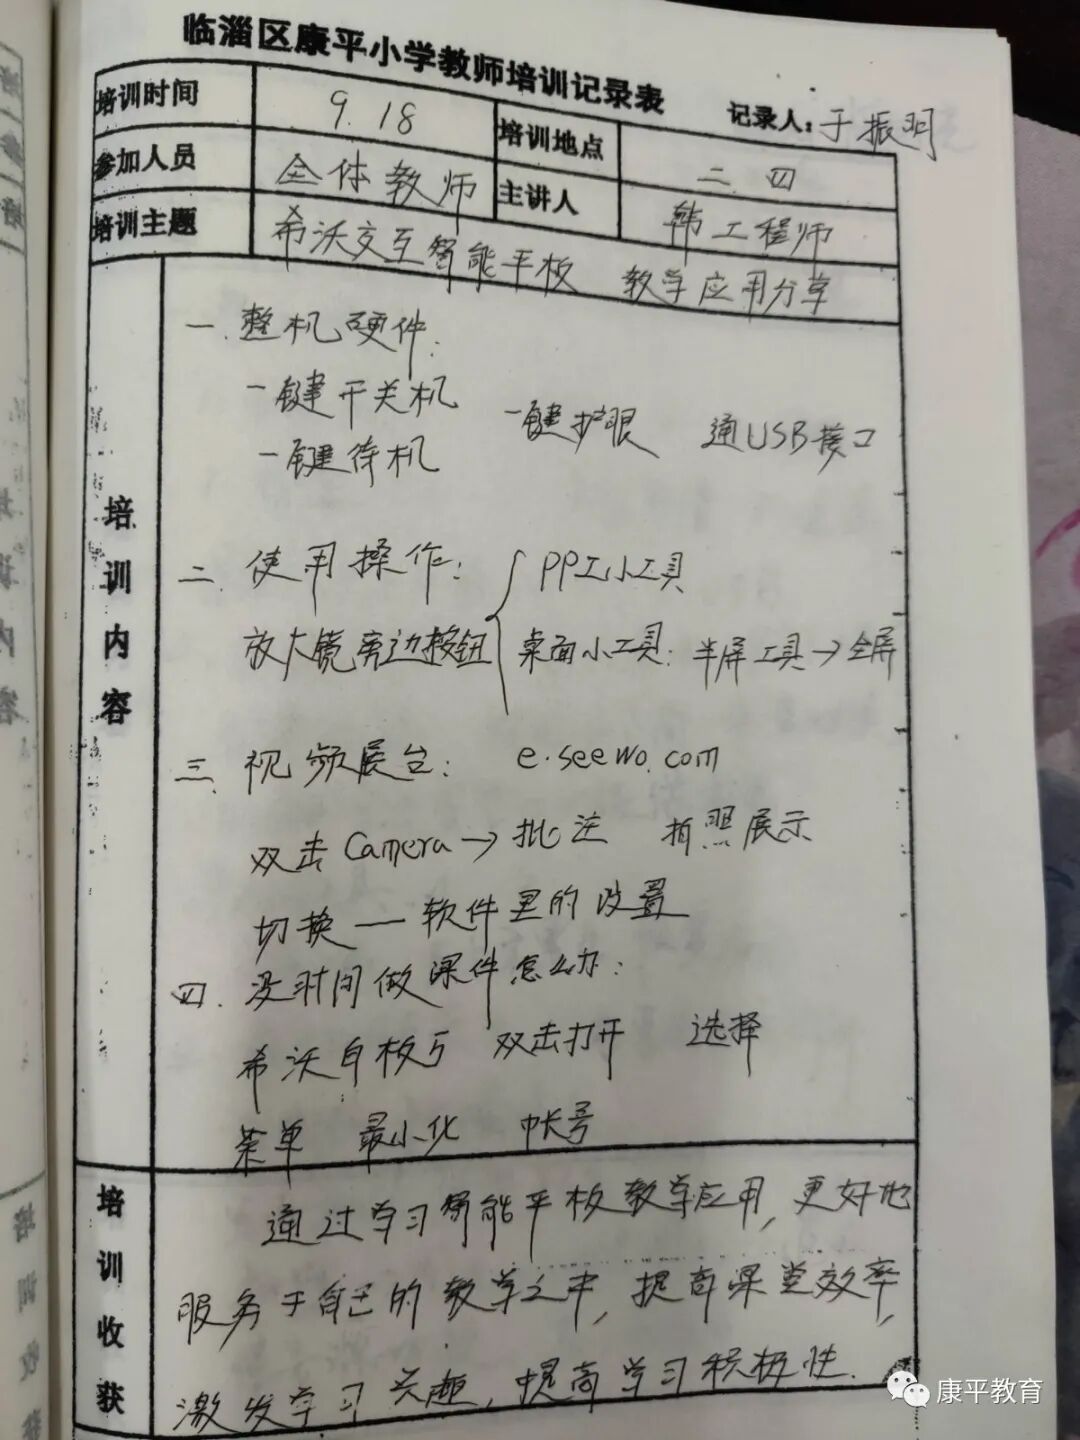 临淄区康平小学教师培训记录表
记录人：于振明
培训时间 9.18 培训地点 二.四
参加人员 全体教师 主讲人 韩工程师
培训主题 希沃交互智能平板 教学应用分享
培训内容
一.整机硬件：
一键开关机 一键护眼 通USB接口
一键待机
二.使用操作： PPT小工具
放大镜旁边按钮 桌面小工具：半屏工具→全屏
三.视频展台： e.seewo.com
双击Camera→批注 拍照展示
切换—软件里的设置
四.没时间做课件怎么办：
希沃白板5 双击打开 选择
菜单 最小化 帐号
培训收获
通过学习智能平板教学应用，更好地
服务于自己的教学之中，提高课堂效率，
激发学习兴趣，提高学习积极性.
康平教育